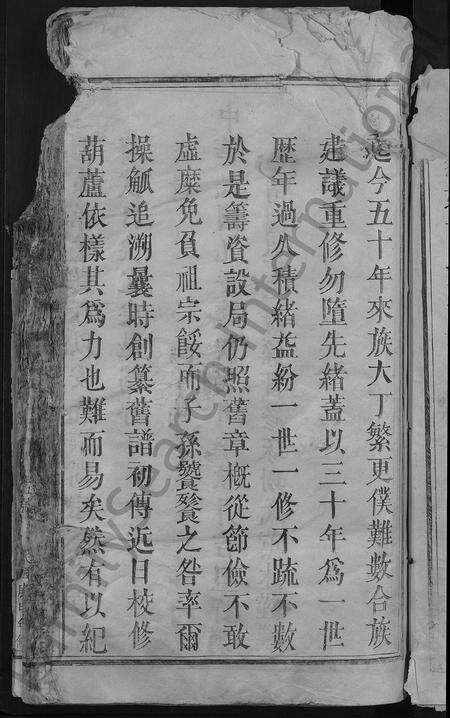 迄今五十年來族大丁繁更僕難數合族
建議重修勿墮先緒蓋以三十年爲一世
歷年過久積緒益紛一世一修不疏不數
於是籌資設局仍照舊章槪從節儉不敢
虛糜免負祖宗餒而子孫饕餮之咎率爾
操觚追溯曩時創纂舊譜初傳近日校修
葫蘆依樣其爲力也難而易矣然有以紀